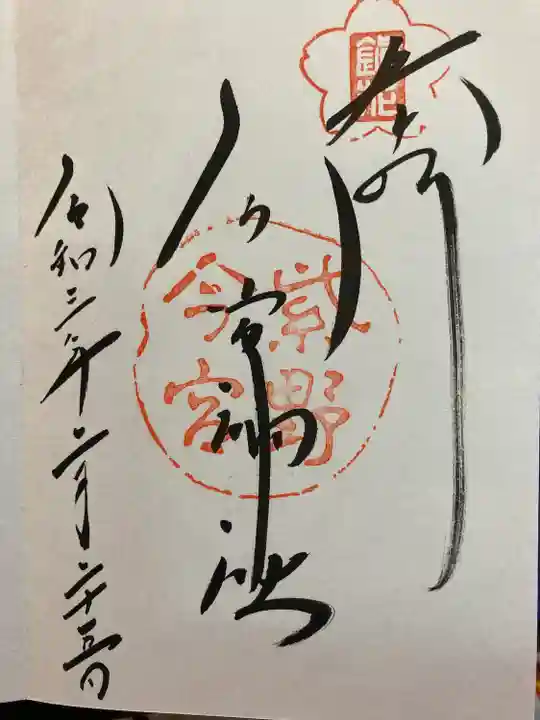 奉拝
今宮神社
紫野
今宮
令和三年二月二十三日